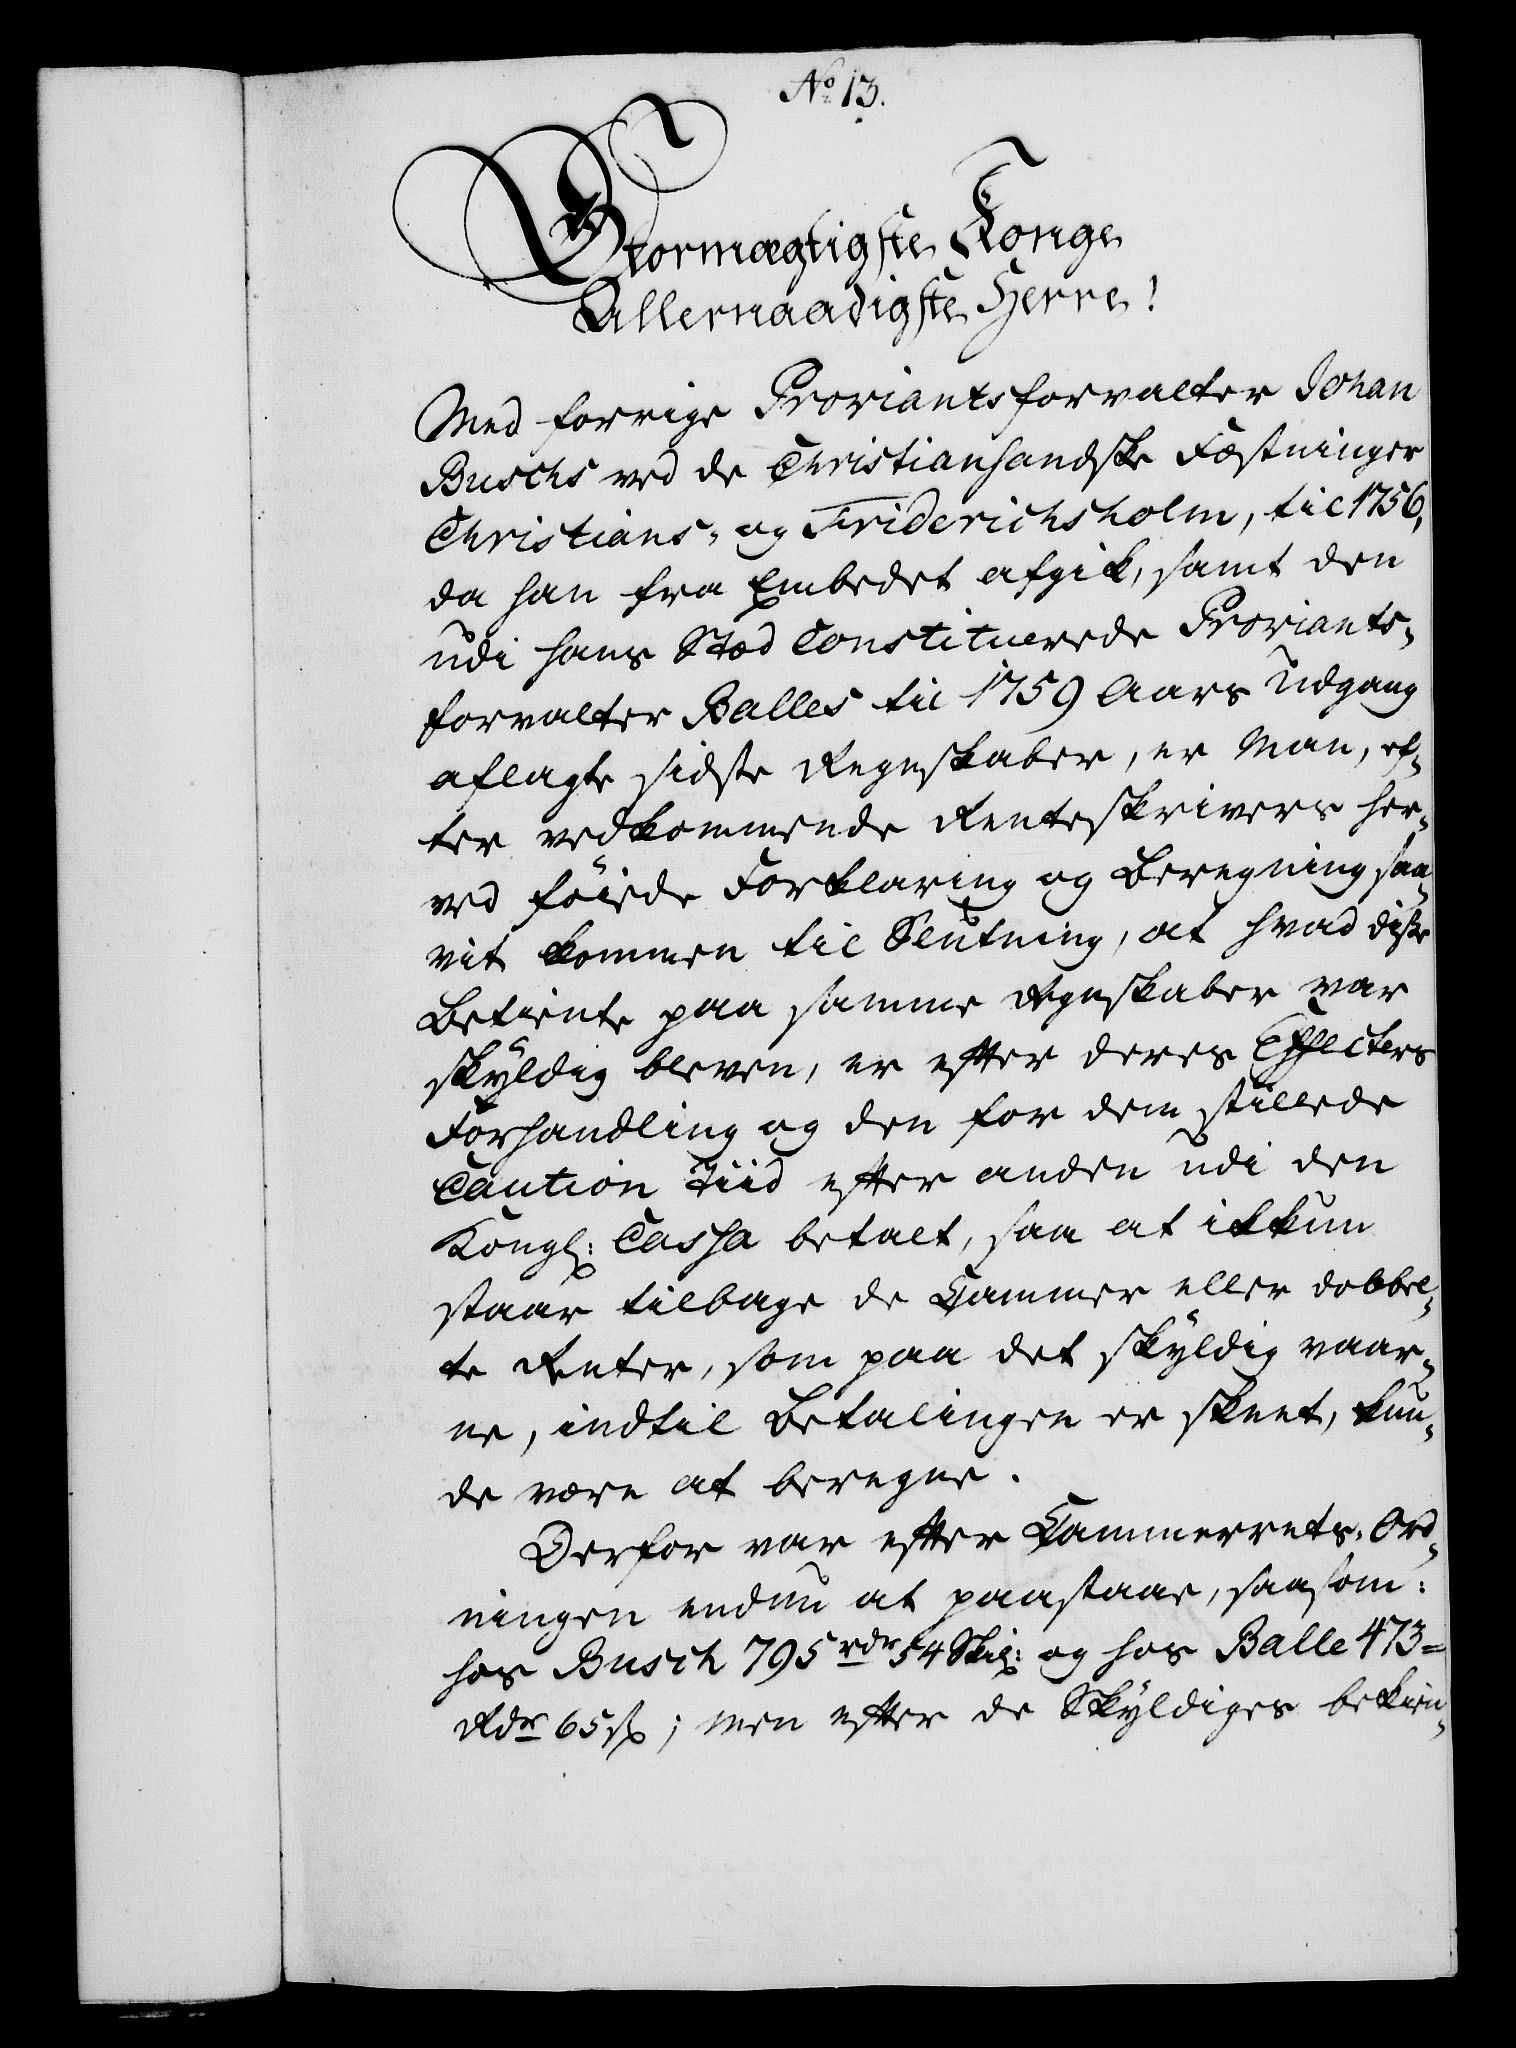 No 13.
Stormægtigste Konge
Allernaadigste Herre!
Med forrige Proviantsforvalter Johan
Buschs ved de Christiansandske Fæstninger
Christians- og Friderichsholm, til 1756,
da han fra Embedet afgik, samt den
udi hans Stæd Constituerede Proviants-
forvalter Balles til 1759 Aars Udgang
aflagte sidste Regnskaber, er Man, ef-
ter vedkommende Renteskrivers her-
ved föiede Forklaring og Beregning saa
vit kommen til Slutning, at hvad disse
Betiente paa samme Regnskaber var
skÿldig bleven, er efter deres Effecters
Forhandling og den for dem stillede
Caution Tiid efter anden udi den
Kongl: Cassa betalt, saa at ikkun
staar tilbage de Cammer eller dobbel-
te Renter, som paa det skÿldig vaar-
ne, indtil Betalingen er skeet, kun-
de være at beregne.
Derfor var efter Cammerrets-Ord-
ningen endnu at paastaae, saasom:
hos Busch 795 rdr 54 Skil: og hos Balle 473=
Rdr 65 s; men efter de Skÿldiges bekien-